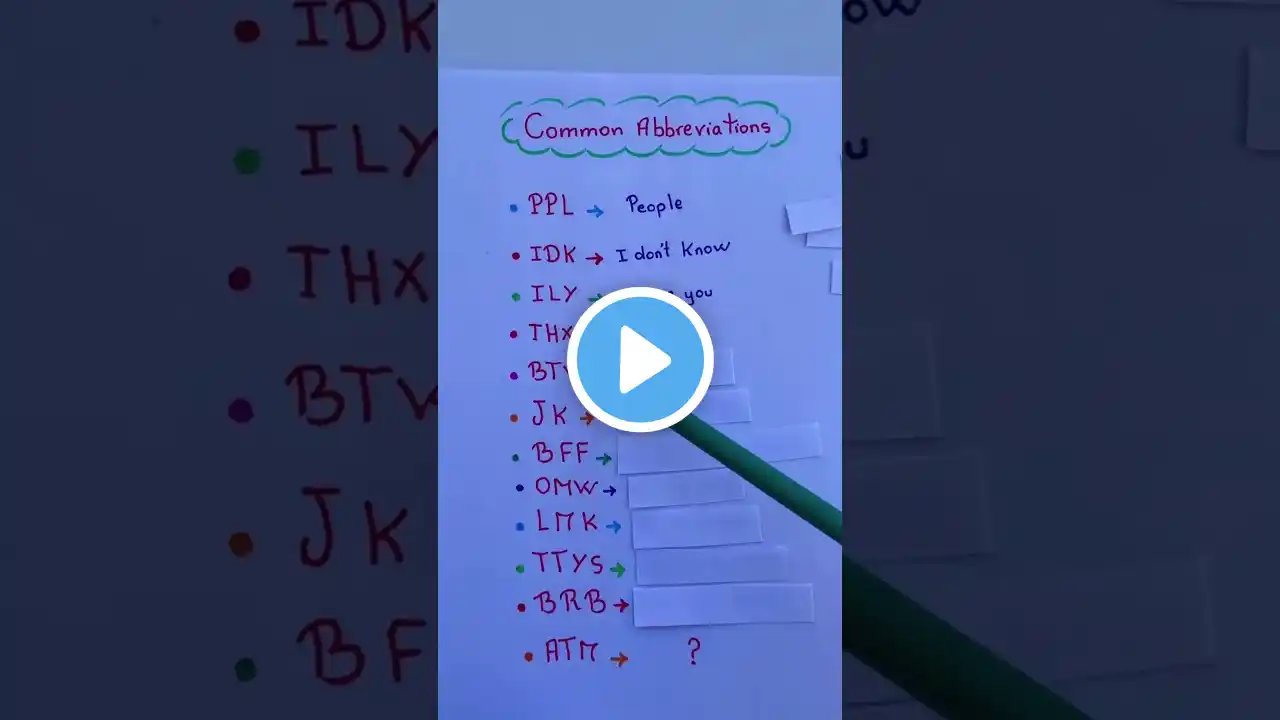 Common Abbreviations
• PPL → People
• IDK → I don't know
• ILY → you
• THX
• BTW
• JK →
• BFF →
• OMW →
• LMK →
• TTYS →
• BRB →
• ATM → ?